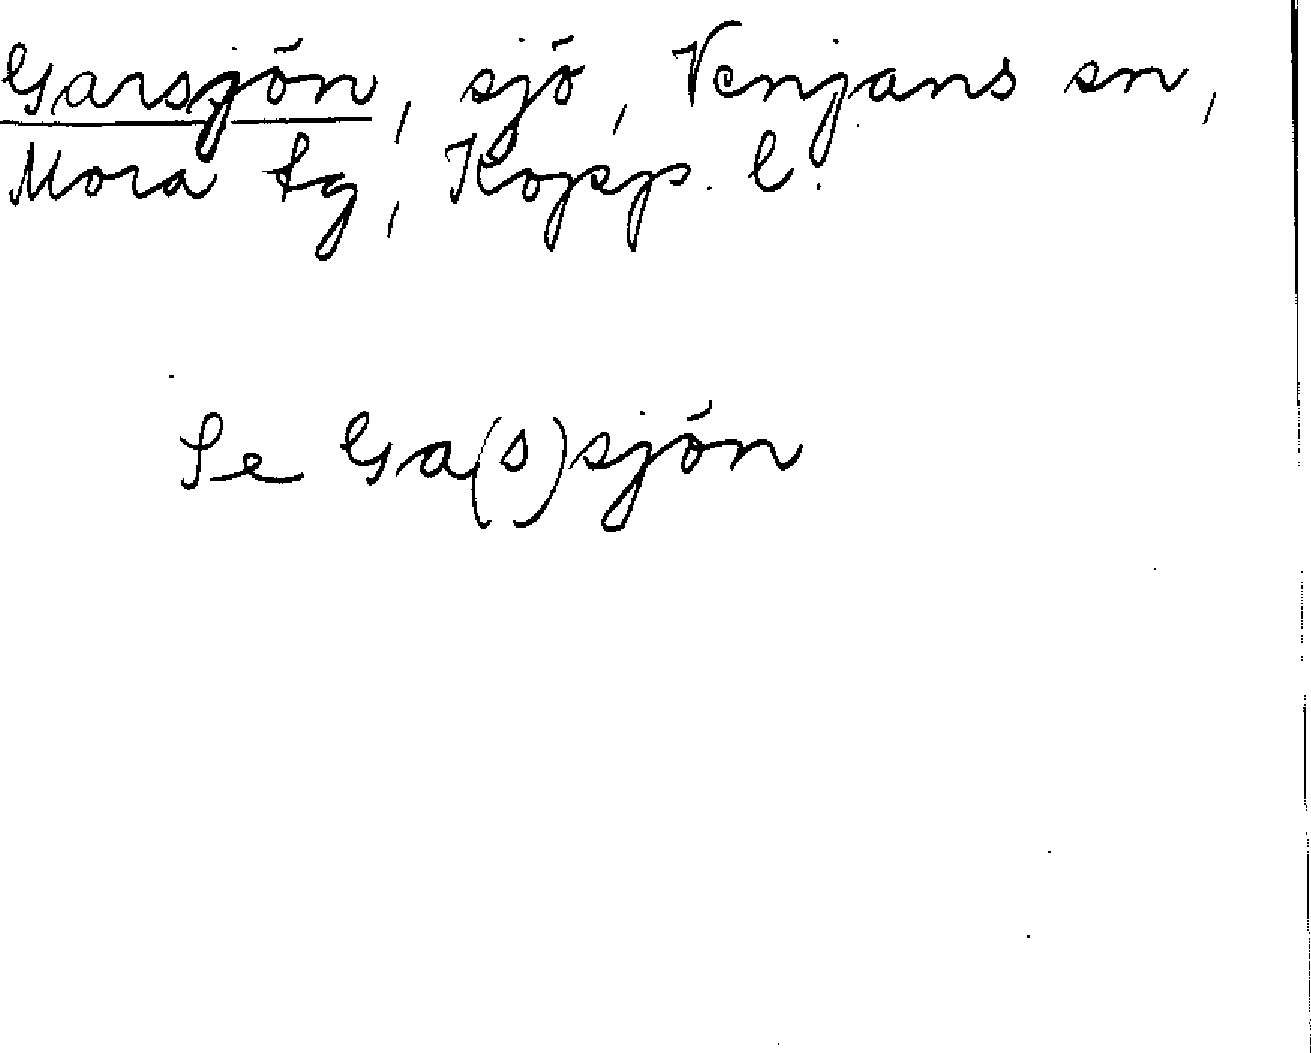 Garsjön, sjö, Venjans sn,
Mora tg, Kopp. l.
Se Ga(s)sjön